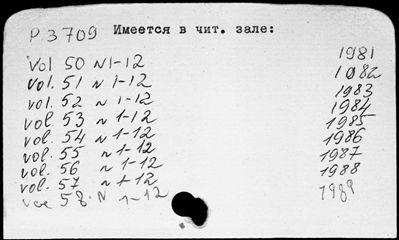 P 3709 Имеется в чит. зале:
Vol 50 N 1-12 1981
vol. 51 N 1-12 1982
vol. 52 N 1-12 1983
vol. 53 N 1-12 1984
vol. 54 N 1-12 1985
vol. 55 N 1-12 1986
vol. 56 N 1-12 1987
vol. 57 N 1-12 1988
vol 58. N 1-12 1989